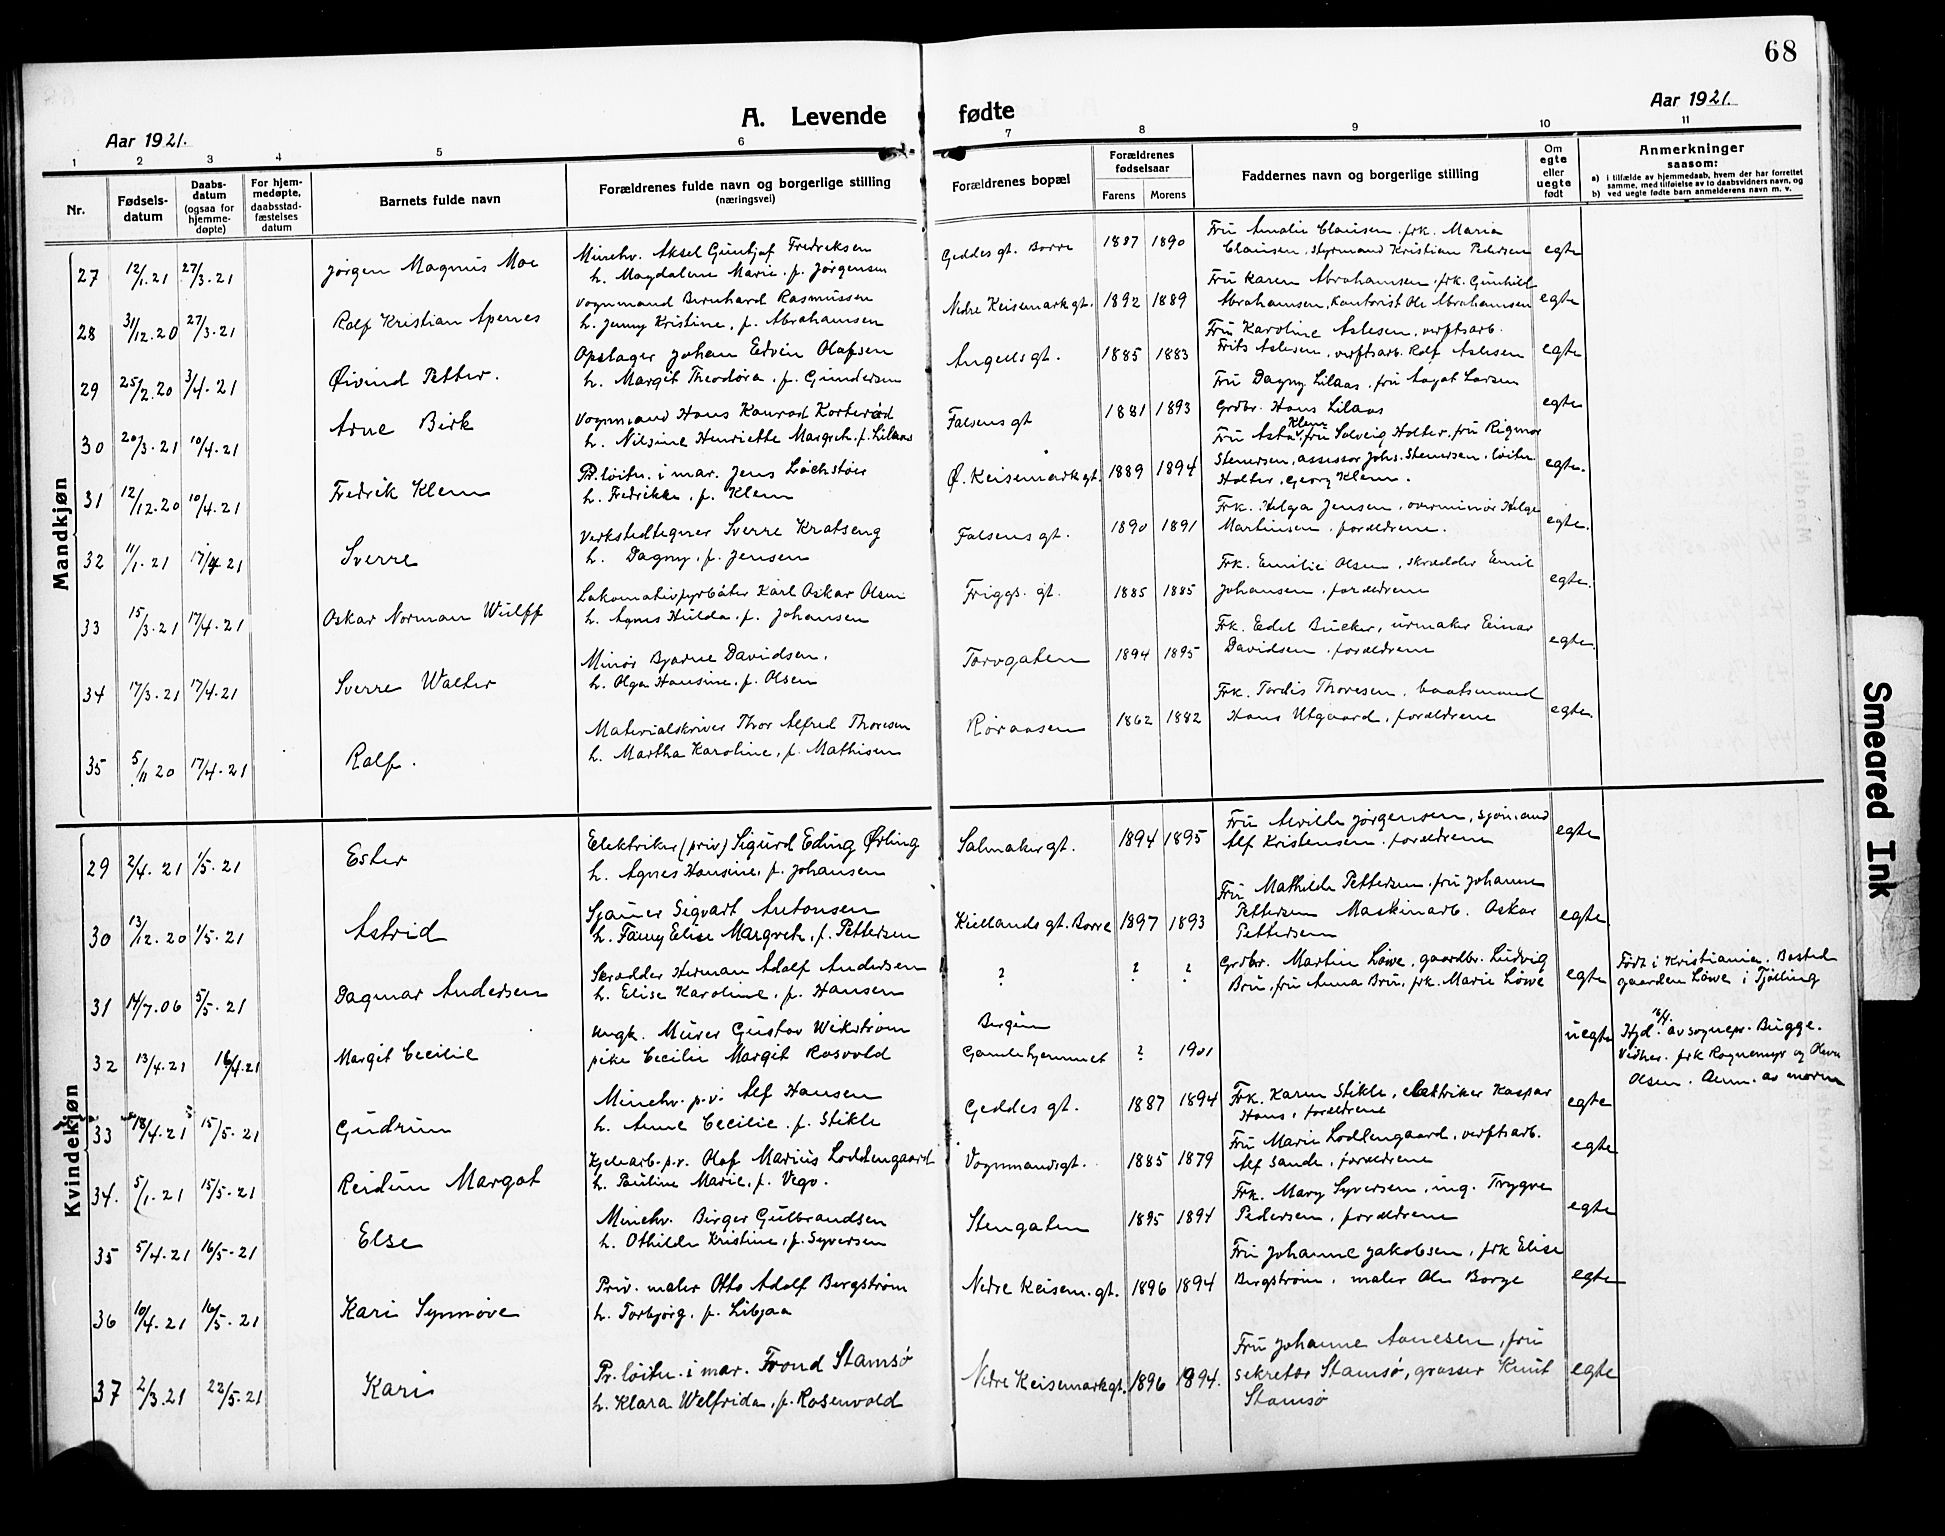 68
A. Levende fødte
Aar 1921.
Aar 1921.
1 2 3 4 5 6 7 8 9 10 11
Nr.
Fødsels-
datum
Daabs-
datum
(ogsaa for
hjemme-
døpte)
For hjem-
medøpte,
daabsstad-
fæstelses
datum
Barnets fulde navn
Forældrenes fulde navn og borgerlige stilling
(næringsvei)
Forældrenes bopæl
Forældrenes
fødselsaar
Farens Morens
Faddernes navn og borgerlige stilling
Om
egte
eller
uegte
født
Anmerkninger
saasom:
a) i tilfælde av hjemmedaab, hvem der har forrettet
samme, med tilføielse av to daabsvidners navn, og
b) ved uegte fødte barn anmelderens navn m. v.
Mandkjøn
27 12/1.21 27/3.21 Jørgen Magnus Moe
Minehv. Aksel Guntjof Fredreksen
h. Magdalene Marie, f. Jørgensen
Geddes gt. Borre 1887 1890
Fru Amalie Clausen, frk. Maria
Clausen, Styrmand Kristian Pedersen
egte
28 31/12.20 27/3.21 Rolf Kristian Apenes
Vognmand Bernhard Rasmussen
h. Jenny Kristine, f. Abrahamsen
Nedre Keisemark gt. 1892 1889
Fru Karen Abrahamsen, frk. Gunhild
Abrahamsen, Kontorist Ole Abrahamsen
egte
29 25/2.20 3/4.21 Øivind Petter.
Opslager Johan Edvin Olafsen
h. Margit Theodora, f. Gundersen
Angells gt. 1885 1883
Fru Karoline Aslesen, verftsarb.
Frits Aslesen, verftsarb. Rolf Aslesen
egte
30 20/3.21 10/4.21 Arne Birk
Vognmand Hans Konrad Korterød
h. Nilsine Henriette Margreth, f. Lilaas
Falsens gt 1881 1893
Fru Dagny Lilaas, fru Aagot Larsen
Grdbr. Hans Lilaas
egte
31 12/12.20 10/4.21 Fredrik Klem
Pr. løitn. i mar. Jens Løchstøer
h. Fredrikke, f. Klem
Ø. Keisemark gt. 1889 1894
Fru Asta Klem, fru Solveig Holter, fru Rigmor
Stenersen, assessor Johs. Stenersen, løitn
Holter, Georg Klem.
egte.
32 11/1.21 17/4.21 Sverre
Verkstedtegner Sverre Kratseng
h. Dagny, f. Jensen
Falsens gt. 1890 1891
Frk. Helga Jensen, overminør Helge
Martinsen, forældrene.
egte.
33 15/3.21 17/4.21 Oskar Norman Wulff
Lokomotivfyrbøter Karl Oskar Olsen
h. Agnes Hulda, f. Johansen
Friggs. gt. 1885 1885
Frk. Emilie Olsen, skrædder Emil
Johansen, forældrene
egte.
34 17/3.21 17/4.21 Sverre Walter
Minør Bjarne Davidsen.
h. Olga Hansine, f. Olsen
Torvgaten 1894 1895
Frk. Edel Bücker, urmaker Einar
Davidsen, forældrene
egte.
35 5/11 20 17/4.21 Rolf.
Materialskriver Thor Alfred Thoresen
h. Martha Karoline, f. Mathisen
Røraasen 1862 1882
Frk. Tordis Thoresen, baatsmand
Hans Utgaard, forældrene
egte.
Kvindekjøn
29 2/4.21 1/5.21 Ester
Elektriker (priv) Sigurd Eding Ørling
h. Agnes Hansine, f. Johansen
Salmaker gt. 1894 1895
Fru Alvilde Jørgensen, sjømand
Alf Kristensen, forældrene
egte
30 13/12.20 1/5.21 Astrid
Sjauer Sigvart Antonsen
h. Fanny Elise Margreth, f. Pettersen
Kiellands gt. Borre 1897 1893
Fru Mathilde Pettersen, fru Johanne
Pettersen Maskinarb. Oskar
Pettersen
egte
31 14/7.06 5/5.21 Dagmar Andersen
Skrædder Herman Adolf Andersen
h. Elise Karoline, f. Hansen
? ? ?
Grdbr. Martin Løwe, gaardbr. Ludvig
Bru, fru Anna Bru, frk. Marie Løwe
egte
Født i Kristiania. Bosted
gaarden Løwe i Tjølling
32 13/4.21 16/4.21 Margit Cecilie
Ungk. Murer Gustav Wikstrøm
pike Cecilie Margit Rosvold
Bergien
Gamlehjemmet ? 1901
uegte
Hjd. 16/4. av sognepr. Bugge.
Vidner. frk Rognemyr og Olava
Olsen. Anm. av moren
33 18/4.21 15/5.21 Gudrun
Minehv. p.v. Alf Hansen
h. Anne Cecilie, f. Stikle
Geddes gt. 1887 1894
Frk. Karen Stikle, elektriker Kaspar
Hans, forældrene
egte
34. 5/1.21 15/5.21 Reidun Margot
Kjelearb. p.v. Olaf Marius Loddengaard
h. Pauline Marie, f. Vego.
Vognmandsgt. 1885 1879
Fru Marie Loddengaard, verftsarb.
Alf Sande, forældrene
egte
35 5/4.21 16/5.21 Else
Minehv. Birger Gulbrandsen
h. Othilde Kristine, f. Syversen
Stengaten 1895 1894
Frk. Mary Syversen, ing. Trygve
Pedersen, forældrene
egte
36 10/4.21 16/5.21 Kari Synnøve
Priv. maler Otto Adolf Bergstrøm
h. Torbjørg, f. Libjaa
Nedre Keisem. gt. 1896 1894
Fru Johanne Jakobsen, frk Elise
Bergstrøm, maler Ole Borge
egte
37 2/3.21 22/5.21 Kari
Pr. løitn. i mar. Trond Stamsø
h. Klara Welfrida, f. Rosenvold
Nedre Keisemarkgt. 1896 1894.
Fru Johanne Aanesen, fru
sekretær Stamsø, grosser Knut
Stamsø
egte
Smeared Ink